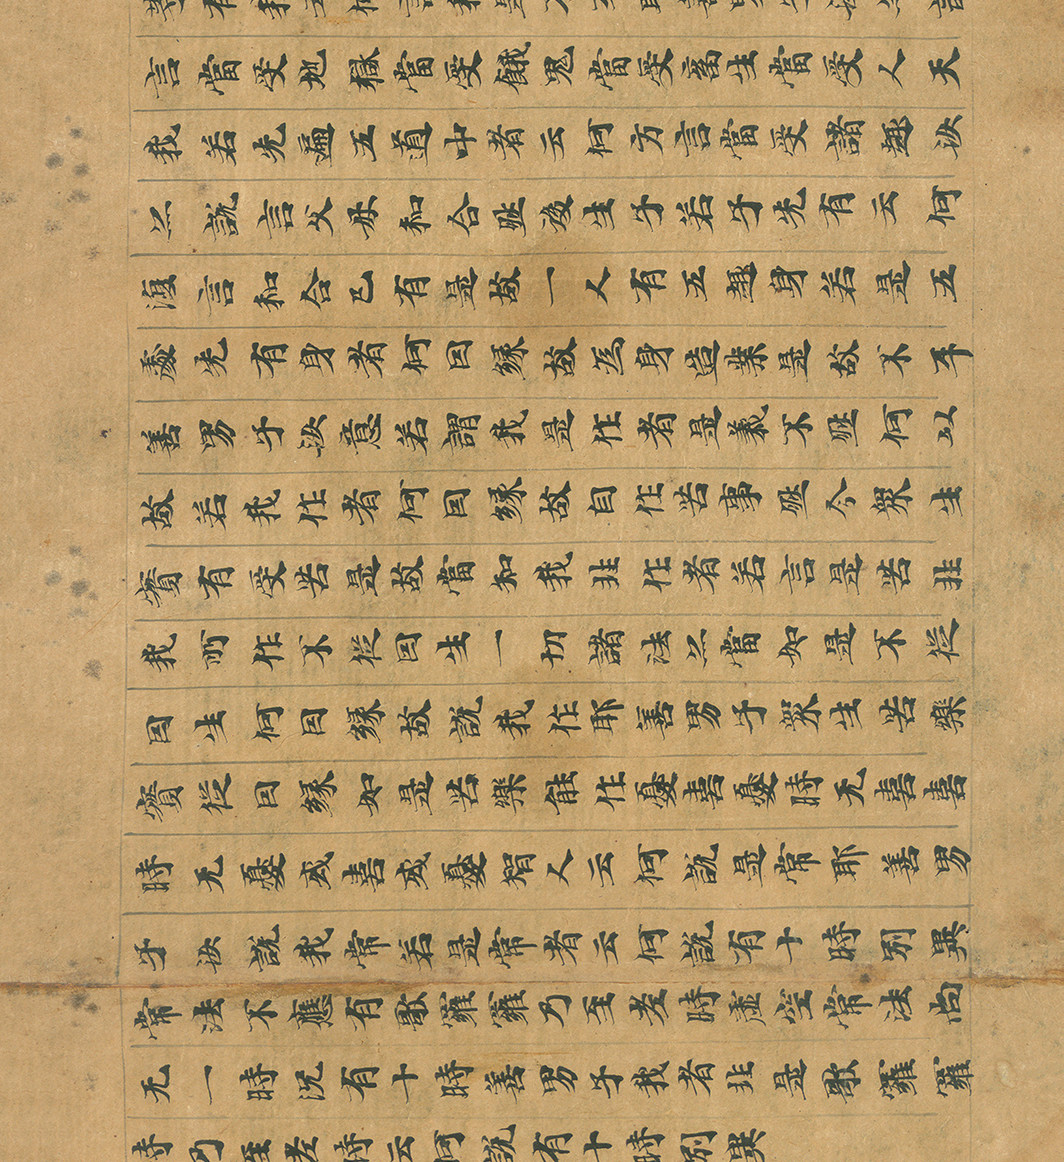 言當受地獄當受餓鬼當受畜生當受人天
我若先遍五道中者云何方言當受諸趣汝
亦說言父母和合然後生子若子先有云何
復言和合已有是故一人有五趣身若是五
處先有身者何因緣故為身造業是故不耳
善男子汝意若謂我是作者是義不然何以
故若我作者何因緣故自作苦事然今眾生
實有受苦是故當知我非作者若言是苦非
我所作不從因生一切諸法亦當如是不從
因生何因緣故說我作耶善男子眾生苦樂
實從因緣如是苦樂能作憂喜憂時无喜喜
時无憂或喜或憂智人云何說是常耶善男
子汝說我常若是常者云何說有十時別異
常法不應有歌羅羅乃至老時虛空常法尚
无一時況有十時善男子我者非是歌羅羅
時乃至老時云何說有十時別異